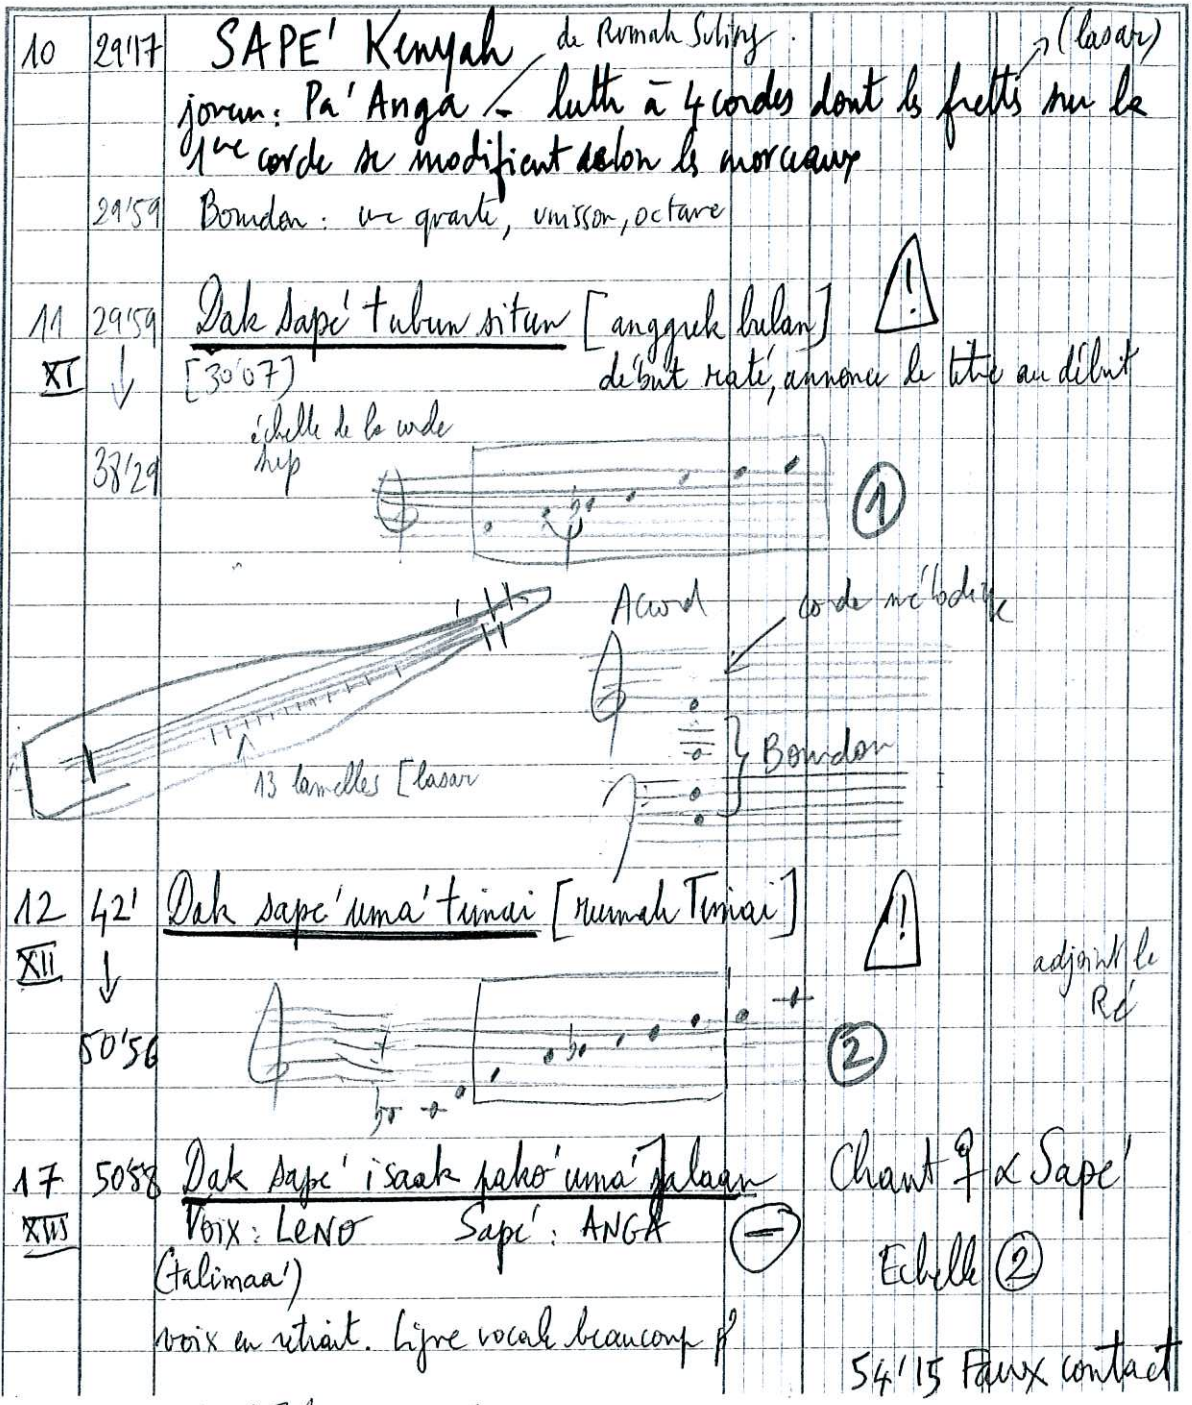 10 29'17 SAPE' Kenyah de Rumah Suling. (lasar)
joueur: Pa' Anga – luth à 4 cordes dont ls fretts sur la
1ere corde se modifient selon ls morceaux
29'59 Bourdon: une quarte, unisson, octave
11 29'59 Dak sapé' tubun situn [anggrek bulan] !
XI [30'07] début raté, annonce le titre au début
échelle de la corde
38'29 sup
1
Accord corde mélodique
Bourdon
13 lamelles [lasar
12 42' Dak sapé' uma' timai [rumah Timai] !
XII adjoint le
Ré
50'56 2
17 50'58 Dak sapé' isaak pako' uma' jalaan Chant ♀ & Sapé'
XIII Voix: LENO Sapé': ANGA –
(talimaa') Echelle 2
voix en retrait. Ligne vocale beaucoup
54'15 Faux contact